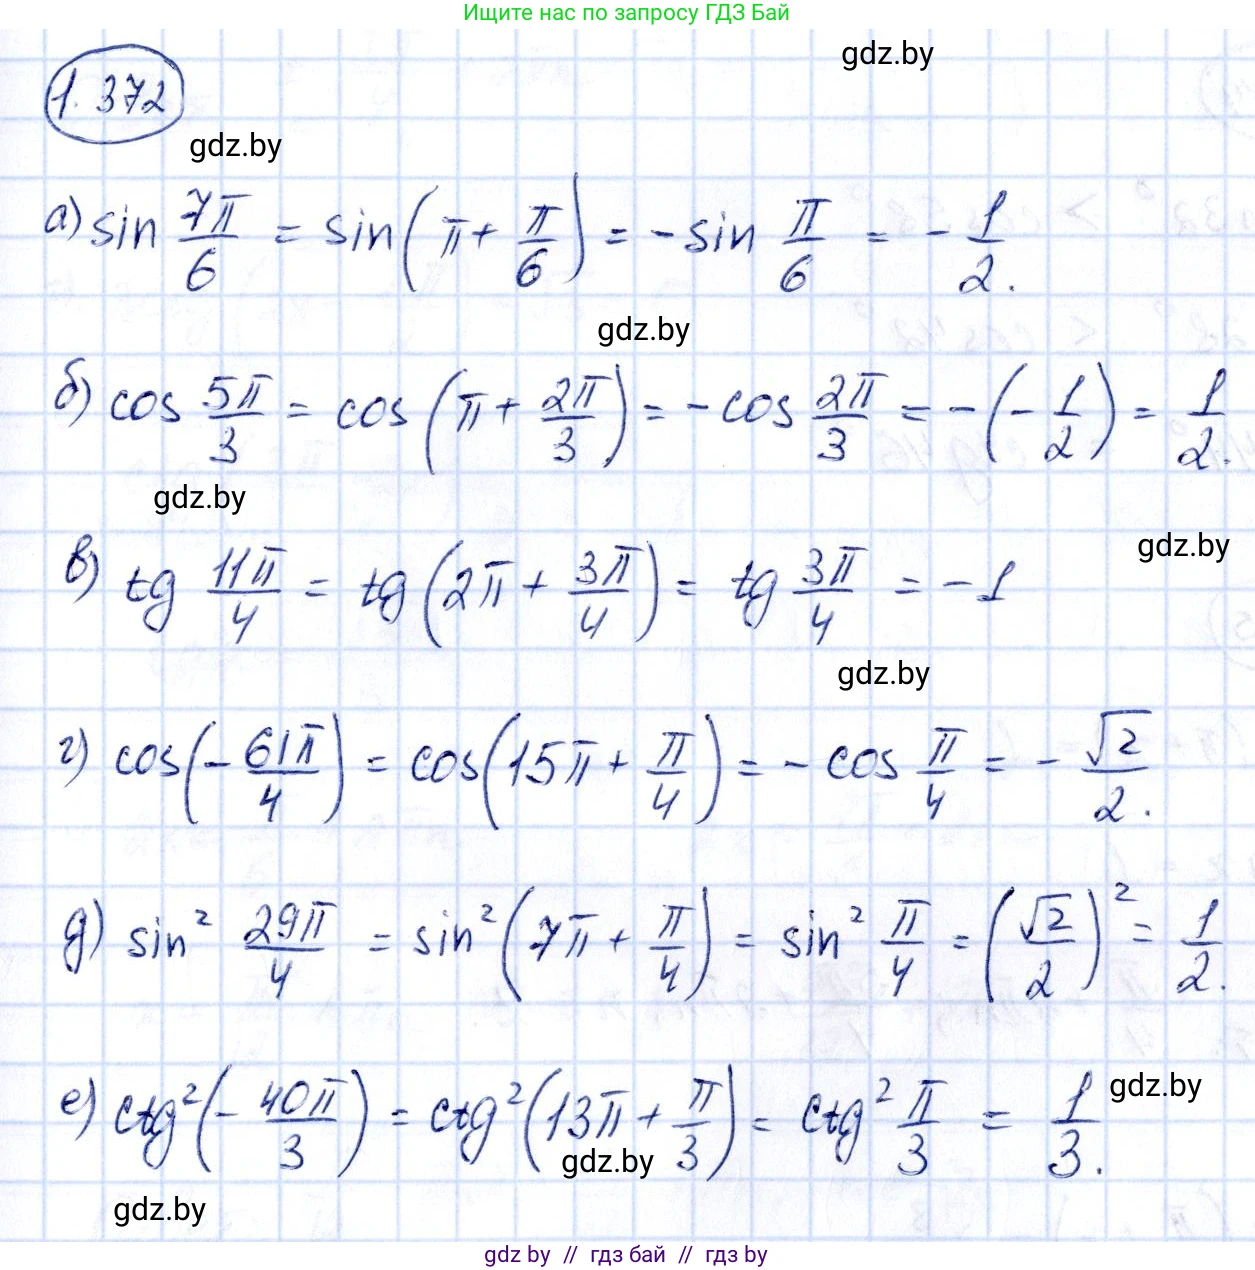 Ищите нас по запросу ГДЗ Бай
gdz.by
1.372
gdz.by
а) sin 7π/6 = sin(π + π/6) = - sin π/6 = - 1/2.
gdz.by
б) cos 5π/3 = cos(π + 2π/3) = - cos 2π/3 = -(- 1/2) = 1/2.
gdz.by
gdz.by
в) tg 11π/4 = tg(2π + 3π/4) = tg 3π/4 = -1
gdz.by
г) cos(- 61π/4) = cos(15π + π/4) = - cos π/4 = - √2/2.
д) sin² 29π/4 = sin²(7π + π/4) = sin² π/4 = (√2/2)² = 1/2.
gdz.by
е) ctg²(- 40π/3) = ctg²(13π + π/3) = ctg² π/3 = 1/3.
gdz.by
gdz.by
gdz by // гдз бай // гдз by